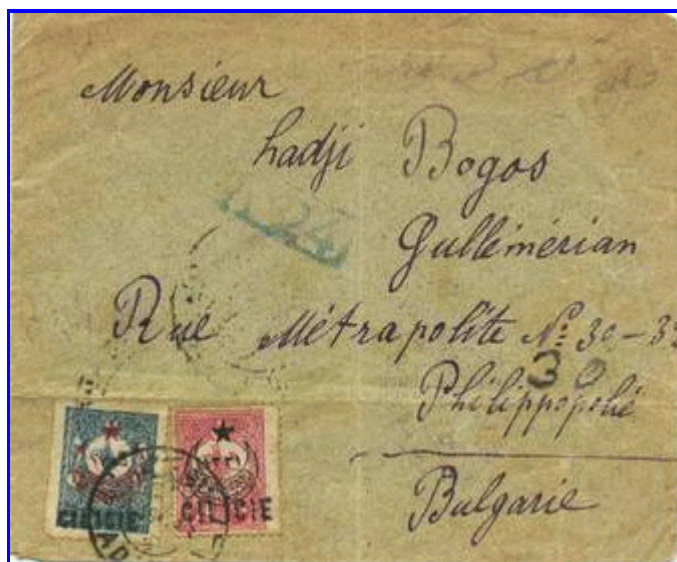 Monsieur
hadji Bogos
Gullémérian
Rue Métrapolite Nº 30-32
30
Philippopolié
Bulgarie
CILICIE CILICIE
AD